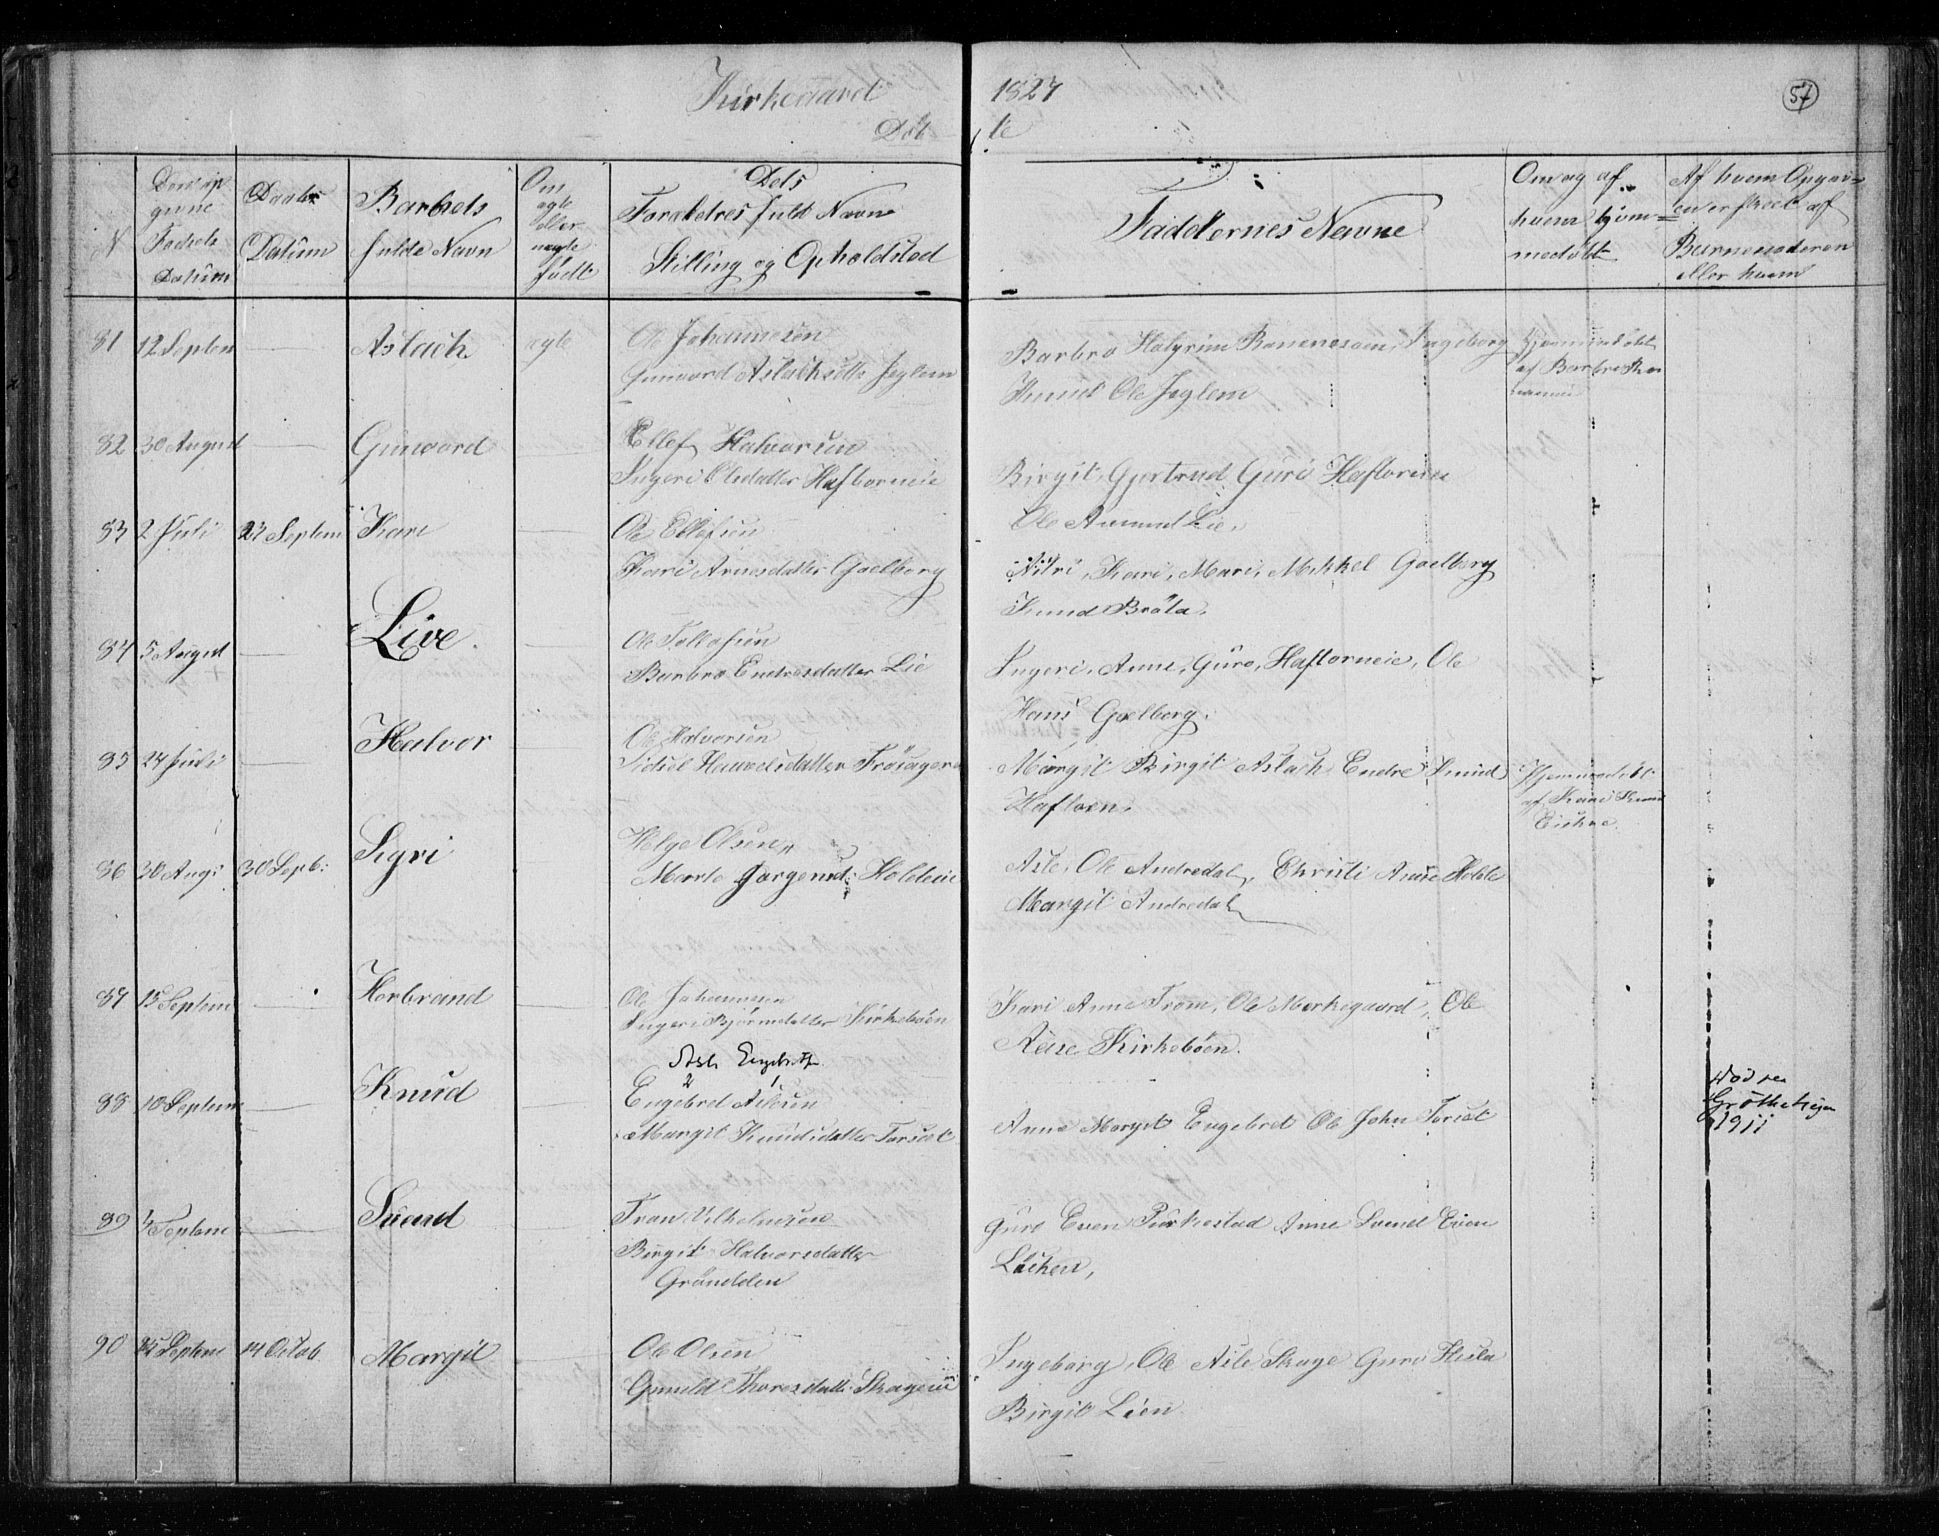 Kirkegaard 1827
57
Døb te
N
Den op
givne
Fødsels
Datum
Daabs
Datum
Barnets
fulde Navn
Om
ægte
eller
uægte
født
Dets
Foreldres fuld Navn
Stilling og Opholdsted
Faddernes Navne
Om og af
hvem hjem=
medøbt
Af hvem Opgav=
en er skeet af
Barnemoderen
eller hvem
81 12 Septem Aslach ægte Ole Johannesen
Gunvord Aslachsdtt Jeglem
Barbro Halgrim Ingeborg
Knud Ole Jeglem
Hjemmedøbt
af Barbro
82 30 August Gunvord Ellef Halvorsen
Ingeri Olsdatter Haftorneie
Birgit, Gjertrud Guri Haftorneie
Ole Amund Lie.
83 2 Juli 23 Septem Kari Ole Ellefsen
Kari Arnesdatter Gaelberg
Kari, Mari, Mikkel Gaelberg
Knud Bråta.
84 5 August Live. Ole Tollefsen
Barbro Endresdatter Lie
Ingeri, Anne, Guro, Haftorneie, Ole
Hans Gaelberg.
85 24 Juli Halvor Ole Halvorsen
Sidsel
Margit Birgit Aslach Endre Knud
Hafton.
Hjemmedøbt
af Kari Knud
86 30 Aug: 30 Sepb: Sigri Helge Olsen
Marte
Asle, Ole Andredal, Christi Anne
Margit Andredal
87 15 Septem Herbrand Ole Johannesen
Ingeri Bjørnsdatter Kirkebøen
Kari Anne Trom, Ole Morkegaard, Ole
Kirkebøen.
88 10 Septem Knud Asle Engebretsn
2 1
Engebret Aslesen
Margit Knudsdatter Torset
Anne Margit Engebret Ole John Torset
Død
1911
89 4 Septem Svend Tron Vilhelmsen
Birgit Halvorsdatter
Guro Even Anne Svend Even
Løken,
90 Septem 14 Octob Margit Ole Olsen
Gunild Thoresdatt Skageneie
Ingeborg, Ole Asle Skage Guri
Birgit Lien